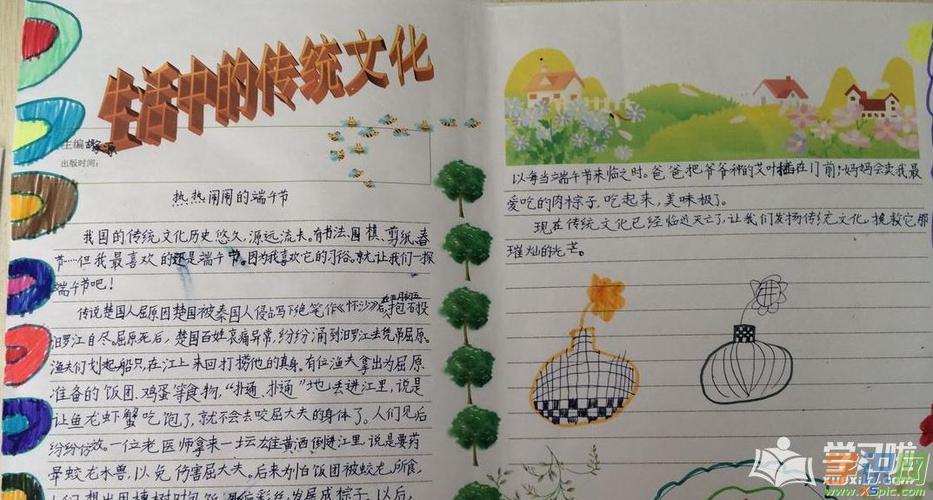 生活中的传统文化
主编胡
出版时间:
热热闹闹的端午节
我国的传统文化历史悠久,源远流长。有书法、围棋、剪纸、春
节…但我最喜欢的还是端午节。因为我喜欢它的习俗。就让我们一探
端午节吧!
传说楚国人屈原因楚国被秦国人侵占写下绝笔作《怀沙》后,在五月初五抱石投
汨罗江自尽。屈原死后,楚国百姓哀痛异常,纷纷涌到汨罗江去凭吊屈原。
渔夫们划起船只,在江上来回打捞他的真身。有位渔夫拿出为屈原
准备的饭团、鸡蛋等食物,“扑通、扑通”地丢进江里,说是
让鱼龙虾蟹吃饱了,就不会去咬屈大夫的身体了。人们见后
纷纷仿效。一位老医师拿来一坛雄黄酒倒进江里,说是要药
晕蛟龙水兽,以免伤害屈大夫。后来为怕饭团被蛟龙所食,
人们想出用楝树叶包饭,外缠彩丝,发展成棕子。以后,
以每当端午节来临之时。爸爸把爷爷种的艾叶插在门前,妈妈会卖我最
爱吃的肉粽子,吃起来,美味极了。
现在传统文化已经临近灭亡了,让我们发扬传统文化,拯救它那
璀灿的光芒。
学习啦
xuexila.com
图网
www.xspic.com